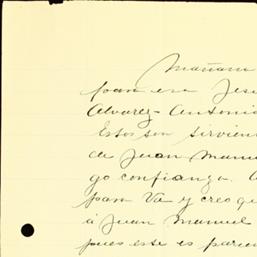 Mañana
pasan en Jesú
Alvarez - Antonio
Estos son sirvien
de Juan Manu
go confianza.
para Va y creo qu
á Juan Manuel
pues este es parien